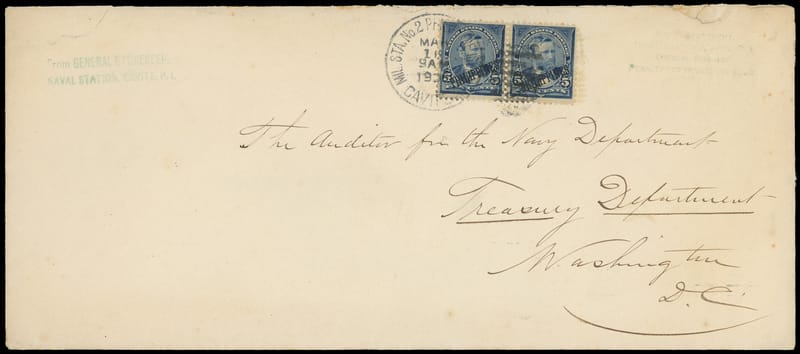 From GENERAL STOREKEEPER
NAVAL STATION, CAVITE, P.I.
MIL. STA. No. 2 PH
MA
9A
19
CAVIT
5 PHILIPPINES 5
The Auditor for the Navy Department
Treasury Department
Washington
D.C.